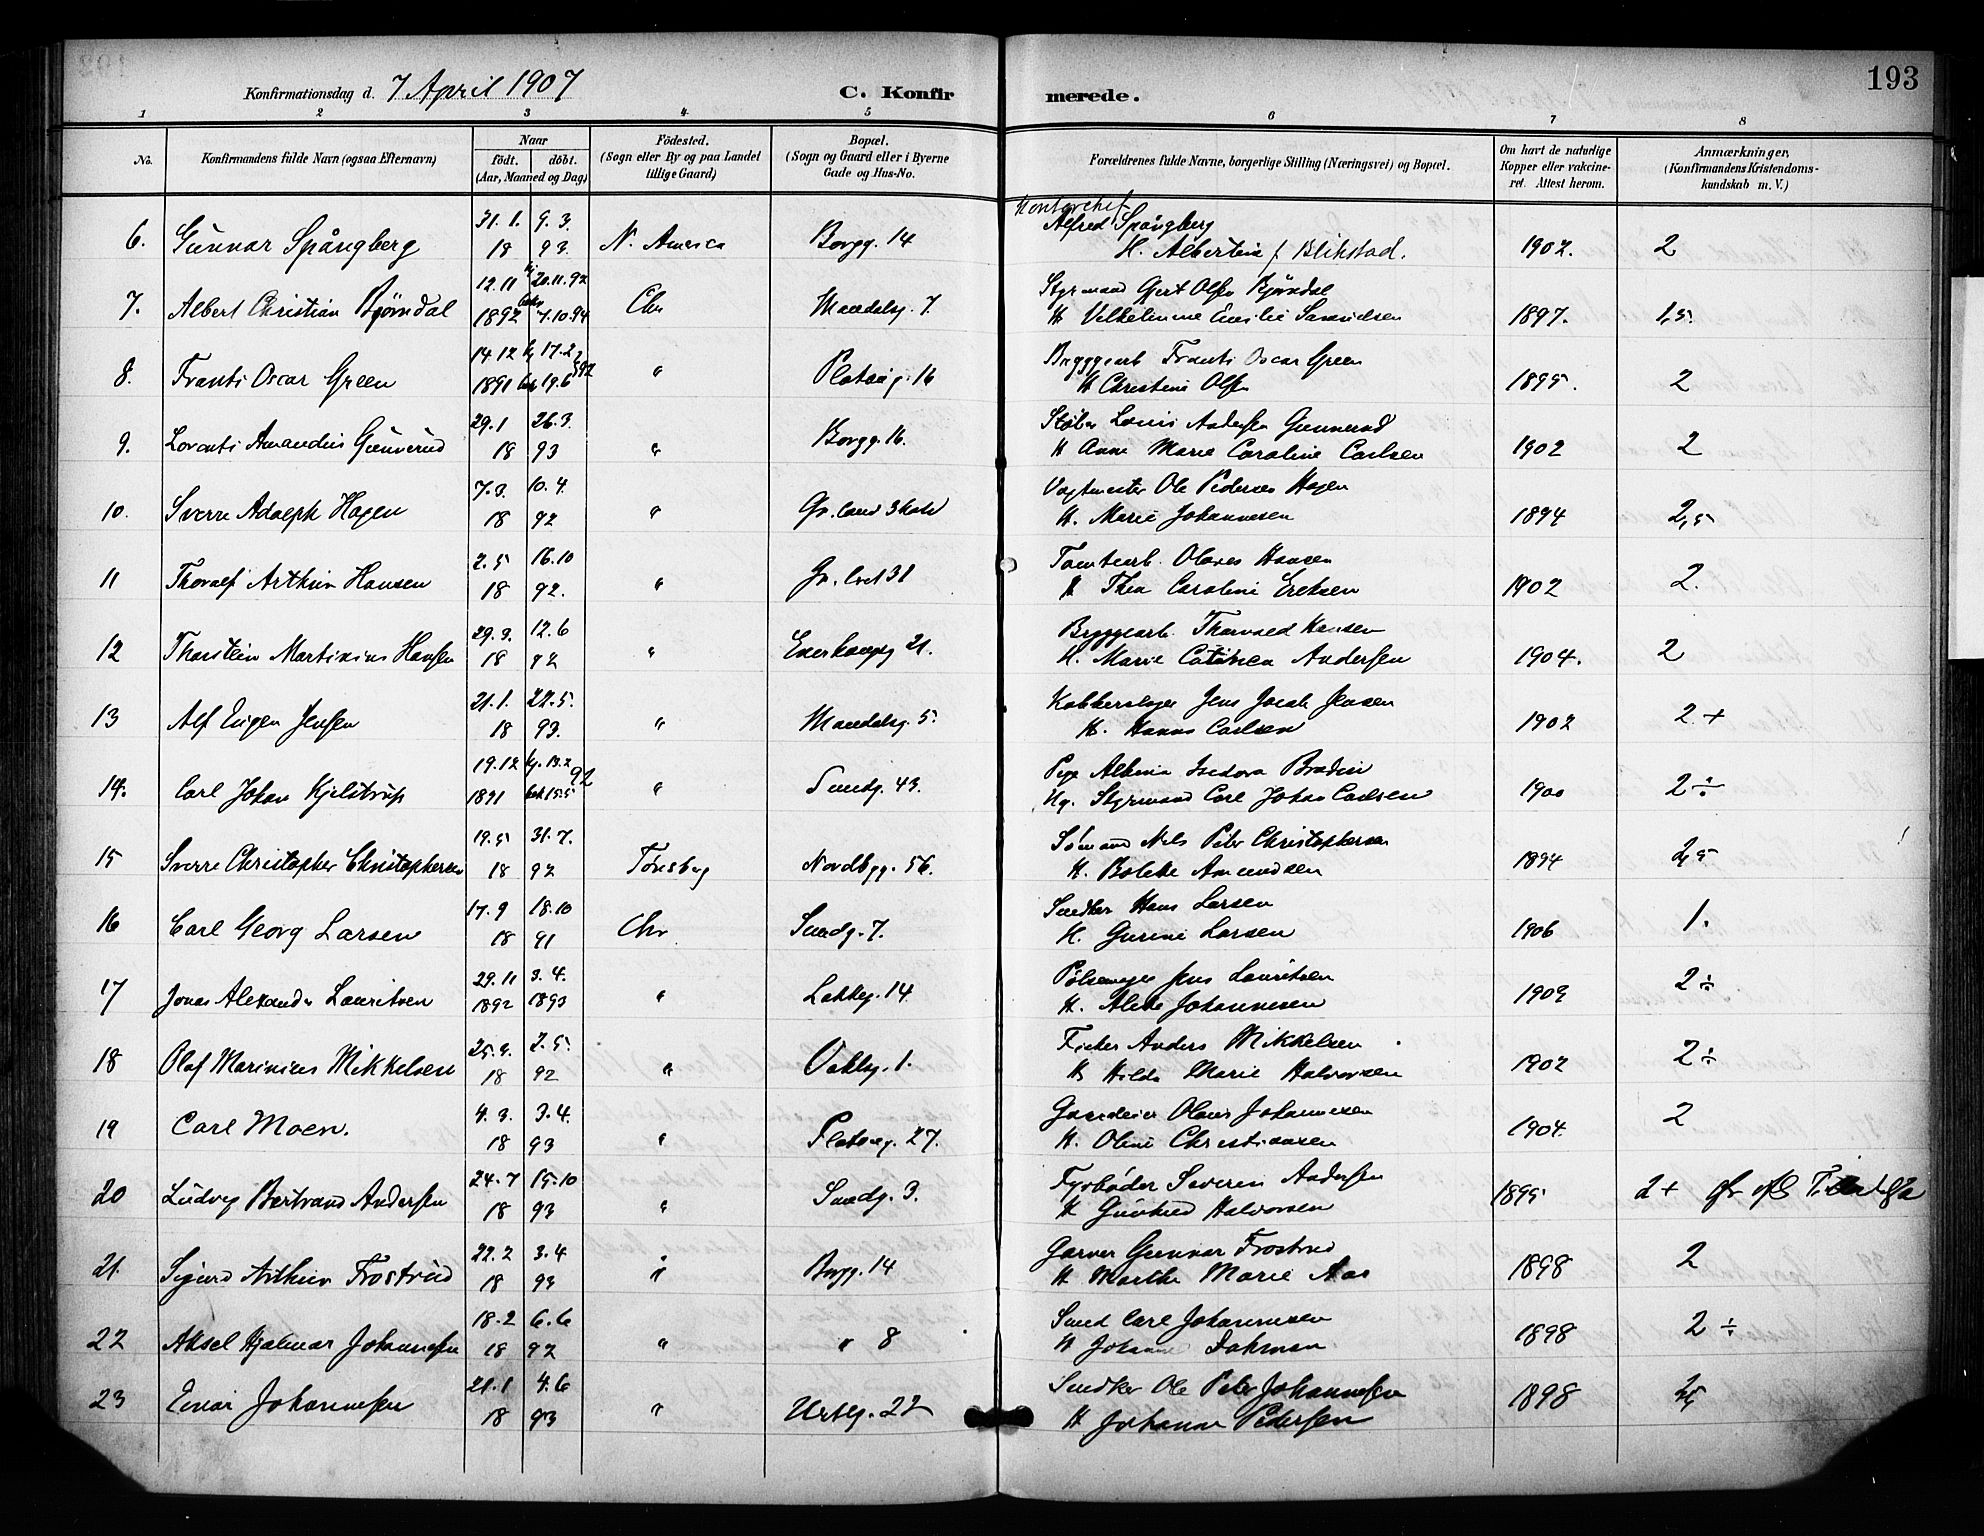 193
Konfirmationsdag d. 7 April 1907
C. Konfirmerede.
1 2 3 4 5 6 7 8
No.
Konfirmandens fulde Navn (ogsaa Efternavn)
Naar
født. døbt.
(Aar, Maaned og Dag)
Fødested.
(Sogn eller By og paa Landet
tillige Gaard)
Bopæl.
(Sogn og Gaard eller i Byerne
Gade og Hus-No.
Forældrenes fulde Navne, borgerlige Stilling (Næringsvei) og Bopæl.
Om havt de naturlige
Kopper eller vakcine-
ret. Attest herom.
Anmærkninger,
(Konfirmandens Kristendoms-
kundskab m. V.)
6. Gunnar Spångberg 31.1. 18 9.3. 93. N. America Borgg. 14 Kontorchef Alfred Spångberg
H. Albertine f. Blikstad. 1902. 2
7. Albert Christian Bjørndal 12.11 1892 20.11.92 7.10.94 Chr Mandalsg. 7. Styrmand Gert Olsen Bjørndal
H Vilhelmine Emilie 1897. 1,5
8. Frants Oscar Green 14.12 1891 17.2 19.6 92 " Platoug. 16 Bryggearb Frants Oscar Green
H Christine Olsen 1895. 2
9. Lorents Amandus Gunnerud 29.1 18 26.3. 93 " Borgg. 16. Støber Louis Andersen Gunnerud
H Anne Marie Caroline Carlsen 1902 2
10. Sverre Adolph Hagen 7.3. 18 10.4. 92 " Vagtmester Ole Pedersen Hagen
H. Marie Johannesen 1894 2,5
11 Thoralf Arthur Hansen 2.5 18 16.10 92. " 31 Tomtearb. Olaves Hansen
H Thea Caroline Eriksen 1902 2.
12 Thorstein Martinius Hansen 29.3. 18 12.6 92 " Enerhaugg 21. Bryggearb. Thorvald Hansen
H. Marie Andersen 1904. 2
13 Alf Eugen Jensen 21.1. 18 22.5. 93. " Mandalsg. 5. Kobberslager Jens Jacob Jensen
H. Hanna Carlsen 1902 2 +
14. Carl Johan Kjelstrup 19.12 1891 13.2 15.5 92 " Smedg. 43. Pige Albina Isedora Brodin
Ug. Styrmand Carl Johan Carlsen 1900 2 ÷
15 Sverre Christopher Christophersen 19.5 18 31.7. 92 Tønsberg Nordbyg. 56. Sømand Nels Peter Christophersen
H. Bolette Amundsen 1894 2,5
16 Carl Georg Larsen 17.9 18 18.10 91 Chr Smedg. 7. Snedker Hans Larsen
H. Gurine Larsen 1906 1.
17 Jonas Alexander Lauritzen 29.11 1892 3.4. 1893 " Lakkeg. 14. Pølsemager Jens Lauritzen
H. Alette Johannesen 1903 2 ÷
18 Olaf Marinius Mikkelsen 25.3. 18 2.5. 92 " 1. Fisker Anders Mikkelsen
H Hilda Marie Halvorsen 1902 2 ÷
19 Carl Moen. 4.3. 18 3.4. 93 " Platoug. 27. Olaus Johannesen
H. Oline Christiansen 1904. 2
20 Ludvig Bertrand Andersen 24.7 18 15.10 93 " Smedg. 3. Fyrbøder Severin Andersen
H Gunhild Halvorsen 1895 2 +
21. Sigurd Arthur Frostrud 22.2 18 3.4 93 " Borgg. 14 Garver Gunnar Frostrud
H Marthe Marie Aas 1898 2
22 Aksel Hjalmar Johannesen 18.2 18 6.6 92 " " 8 Smed Carl Johannesen
H Johanne 1898 2 ÷
23 Einar Johannesen 21.1 18 4.6 93 " Urteg. 22 Snedker Ole Peter Johannesen
H Johanne Pedersen 1898 2,5